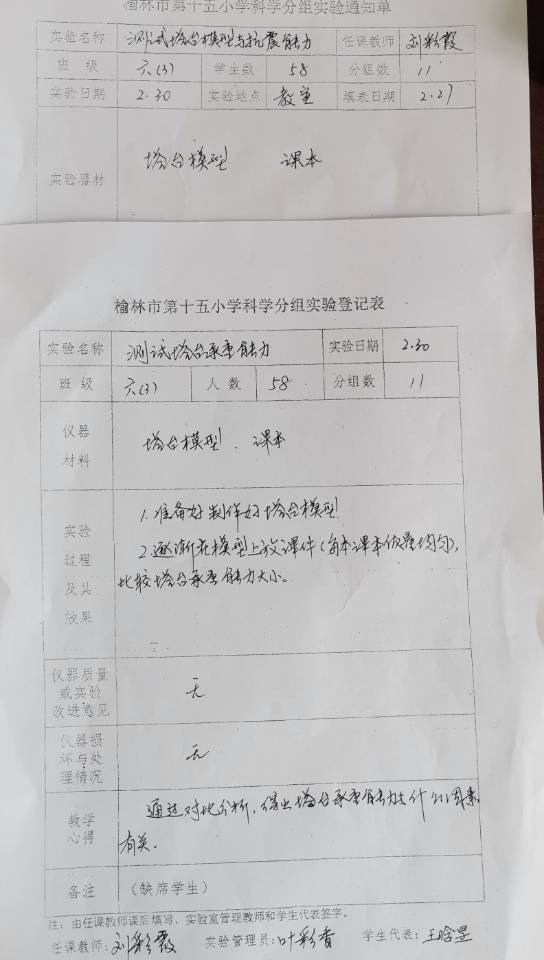 榆林市第十五小学科学分组实验通知单
实验名称 测试塔台模型与抗震能力 任课教师 刘彩霞
班 级 六(3) 学生数 58 分组数 11
实验日期 2.30 实验地点 教室 填表日期 2.27
实验器材 塔台模型 课本
榆林市第十五小学科学分组实验登记表
实验名称 测试塔台承重能力 实验日期 2.30
班 级 六(3) 人 数 58 分组数 11
仪器
材料
塔台模型、课本
实验
过程
及其
效果
1.准备好制作好塔台模型
2.逐渐在模型上放课件(每本课本质量均匀),
比较塔台承重能力大小。
仪器质量
或实验
改进意见
无
仪器损
坏与处
理情况
无
教学
心得
通过对比分析,得出塔台承重能力与什么因素
有关.
备注 (缺席学生)
注:由任课教师课后填写,实验室管理教师和学生代表签字。
任课教师:刘彩霞 实验管理员:叶彩香 学生代表:王晗昱